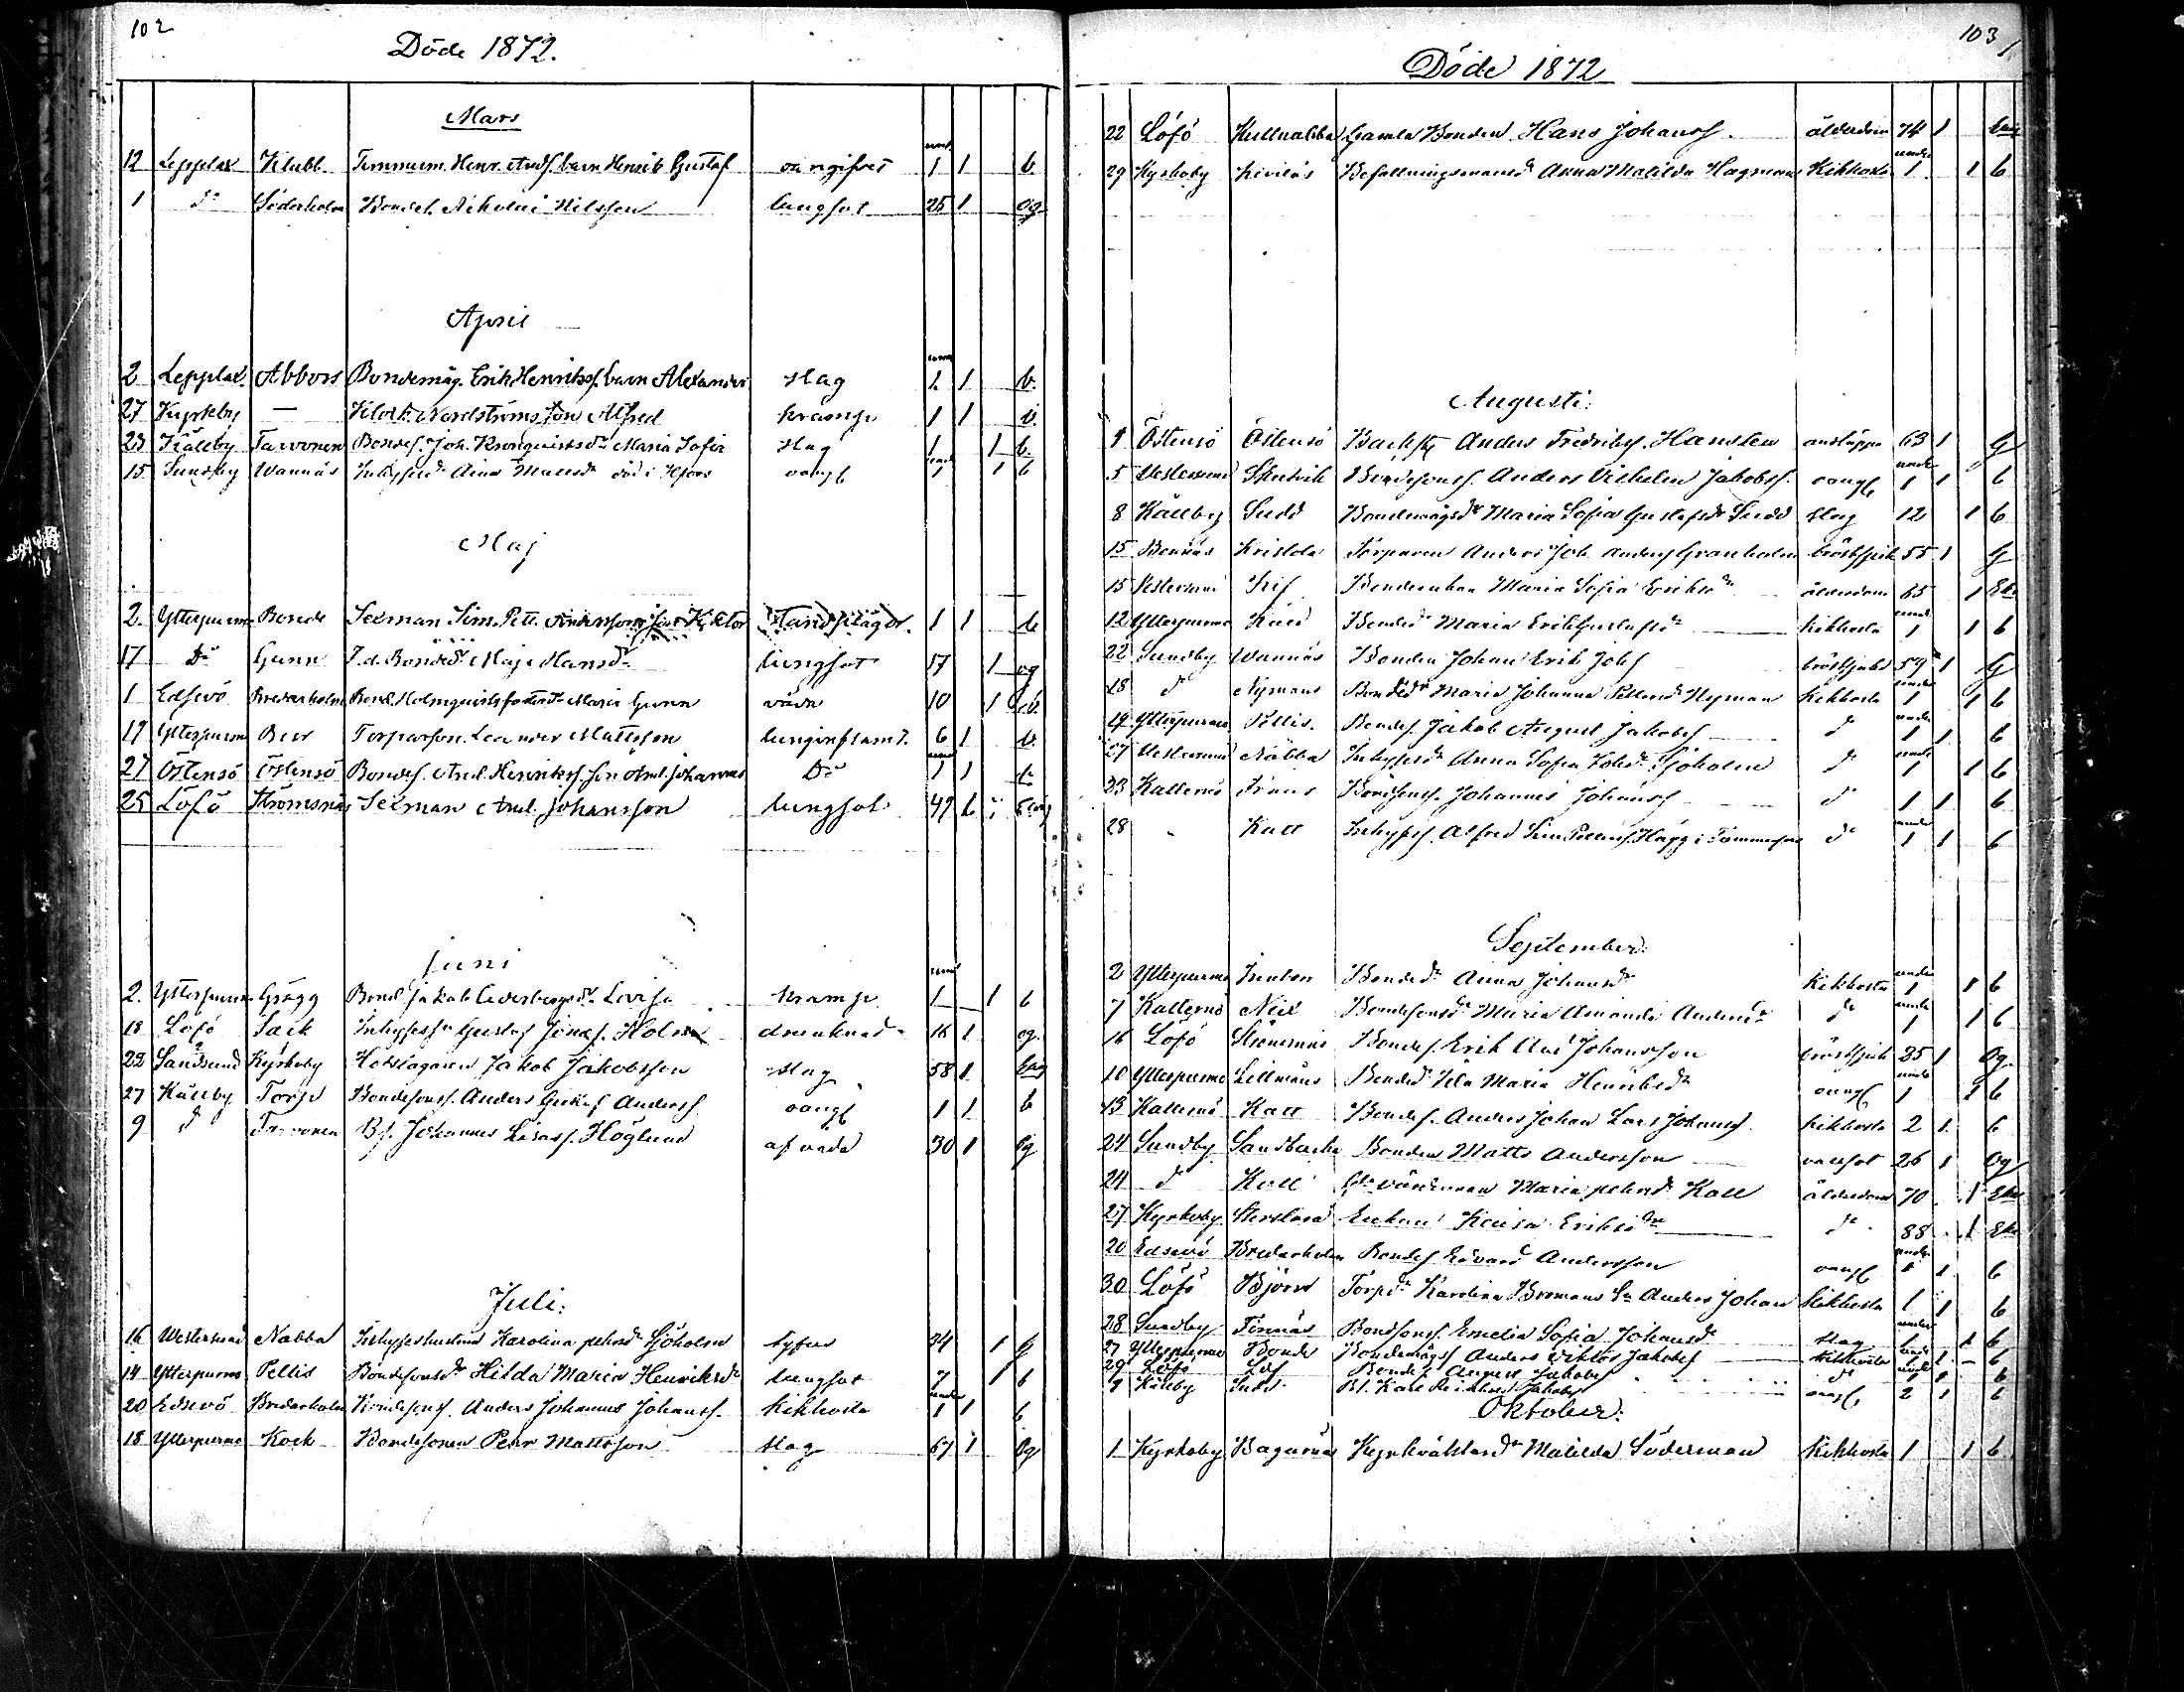 102
Döde 1872.
Mars
12 Lepplax Klubb Timmerm. Henr. Andss. barn Henrik Gustaf oangifvet 1 1 b.
1 do Söderholm Bondes. Nikolai Nilsson lungsot 25 1 og
April
2 Lepplax Abbors Bondemåg. Erik Henrikss. barn Alexander slag 1 1 b.
27 Kyrkby — Klock. Nordströms son Alfred kramp 1 1 b.
23 Källby Tarvonen Bondes. Joh. Kronqvists dr Maria Sofia slag 1 1 b.
15 Sundby Wannäs Inhysesdr Anna Mattsdr död i Hfors oangf 1 b
Maj
2. Ytterpurmo Bonde Sexman Sim. Pett. Anderssons son Viktor 1 1 b
17 Do Gunn F.d. Bondedr Maja Hansdr lungsot 17 1 og
1 Edsevö Bredarholm Bond. Holmqvists fosterdr Maria Gunn våda 10 1 b.
17 Ytterpurmo Torparson Leander Mattsson lunginflam. 6 1 b.
27 Östensö Östensö Bondes. And. Henrikss. son And. Johannes Do 1 1 b
25 Löfö Strömsnäs Sexman And. Johansson lungsot 47
Juni
2. Ytterpurmo Grägg Bond. Jakob Cederbergs dr Lovisa kramp 1 1 b
18 Löfö Sack Inhysessn Gustaf Jonas. Holm drunknad 16 1 og.
22 Sandsund Kyrkoby Jakob Jakobsson slag 58 1
27 Källby Torp Bondesons. Anders Gustaf Anderss. oangf 1 1 b
9 d Tarvonen Bs. Johannes Höglund af våda 30 1 Og
Juli:
16 Westersund Nabba Inhyseshustrun Karolina petersdr Sjöholm tyfus 24 1 g
14 Ytterpurmo Pellis Bondesonsdr Hilda Maria Henriksdr lungsot 7 1 b
20 Edsevö Bredarholm Bondesons. Anders Johannes Johanss. Kikhosta 1 1 b
18 Ytterpurmo Kock Bondesonen Pehr Mattsson slag 67 1 Og
103
Döde 1872
22 Löfö Kullnabba Gamla Bonden Hans Johanss. ålderdom 74 1
29 Kyrkoby Kiviläs Befallningsmansdr Anna Matilda Hagman Kikhosta 1 1 b
Augusti:
Östensö Östensö Anders Fredrikss. Hansten andtäppa 63 1 G
5 Westersund Skutvik Bondesons. Anders Vilhelm Jakobss. oangf 1 1 b
8 Källby Sudd Bondemågsdr Maria Sofia Gustafsdr Sudd slag 12 1 b
15 Bennäs Kristola Torparen Anders Joh. Anderss Granholm bröstsjuk 55 1 G
15 Westersund Bondeenkan Maria Sofia Eriksdr ålderdom 65 1 Eka
12 Ytterpurmo Bondedr Maria Erik Gustafsdr Kikhosta 1 1 b
22 Sundby Wannäs Bonden Johan Erik Johss bröstsjukd 59 1 G
18 d Nymans Bondedr Maria Johanna Nyman Kikhosta 1 1 b
19 Ytterpurmo Pellis. Bondes. Jakob August Jakobss d 1 1 b
27 Westersund Nabba Inhysesdr Anna Sofia Sjöholm d 1 1 b
23 Kallernö Frans Bondesons. Johannes Johanss d 1 1 b
28 Katt Inhyses. Alfred Sim. Hägg i Tammerfors d 1 1 b
September:
2 Ytterpurmo Bondedr Anna Johansdr Kikhosta 1 1 b
7 Kallernö Nix Bondesonsdr Maria Amanda Andersdr d 1 1 b
16 Löfö Strömsnäs Bondes. Erik And Johansson bröstsjuk 25 1 Og.
10 Ytterpurmo Lillmåns Bondedr Ida Maria Henriksdr oangf 1 1 b
13 Kallernö Katt Bondes. Anders Johan Lars Johanss. Kikhosta 2 1 b
24 Sundby Sandbacka Bonden Matts Andersson 26 1 Og
24 d Kall Maria petersdr Kall ålderdom 70 1
27 Kyrkoby Enkan Kaisa Eriksdr d 88 1
20 Edsevö Bredarholm Bondes Edvard Andersson oangf 1 1 b
30 Löfö Björn Torpdr Karolina Bromans Sn Anders Johan Kikhosta 1 1 b
28 Sundby Finnäs Bondsons. Emelia Sofia Johansdr slag 1 1 b
27 Ytterpurmo Bonde Bondemågs Anders Viktor Jakobss Kikhosta 1 1 b
29 Löfö Bondes August Jakobss b
9 Källby Sudd Bs. Karl Jakobss oangf 2 1 b
Oktober:
1 Kyrkoby Bagarnäs Kyrkväktaredr Matilda Söderman Kikhosta 1 1 b